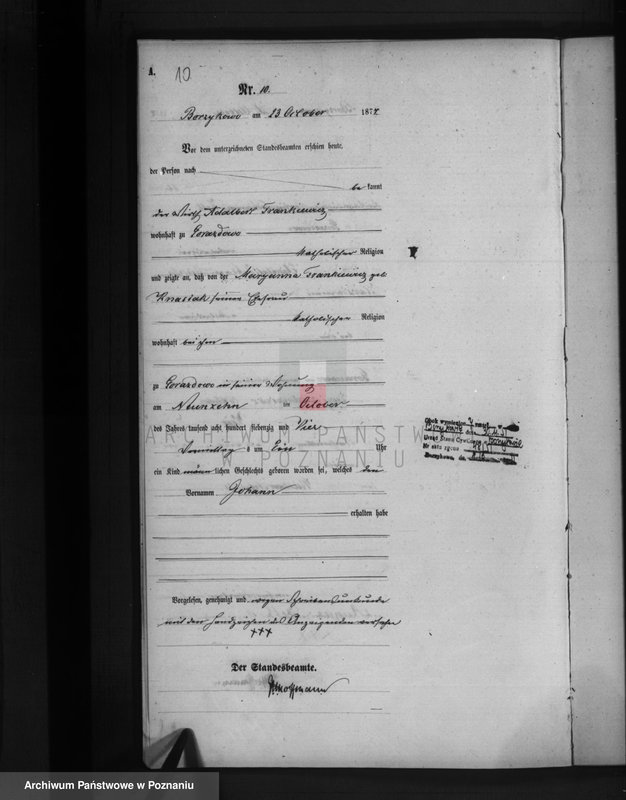 A. 10
Nr. 10.
Borzykowo am 23 October 1874
Vor dem unterzeichneten Standesbeamten erschien heute,
der Person nach
be kannt
der Wirth Adalbert Frankiewicz
wohnhaft zu Gorazdowo
katholischer Religion
und zeigte an, daß von der Maryanna Frankiewicz geb.
Knasiak seiner Ehefrau
katholischer Religion
wohnhaft bei ihm
zu Gorazdowo in seiner Wohnung
am Neunzehn ten October
des Jahres tausend acht hundert siebenzig und Vier
Vormittag s um Ein Uhr
ein Kind männlichen Geschlechts geboren worden sei, welches den
Vornamen Johann
erhalten habe
Vorgelesen, genehmigt und wegen Schreibensunkunde
mit den Handzeichen des Anzeigenden versehen
+++
Der Standesbeamte.
Hoffmann
ARCHIWUM PAŃSTWOWE
W POZNANIU
Archiwum Państwowe w Poznaniu